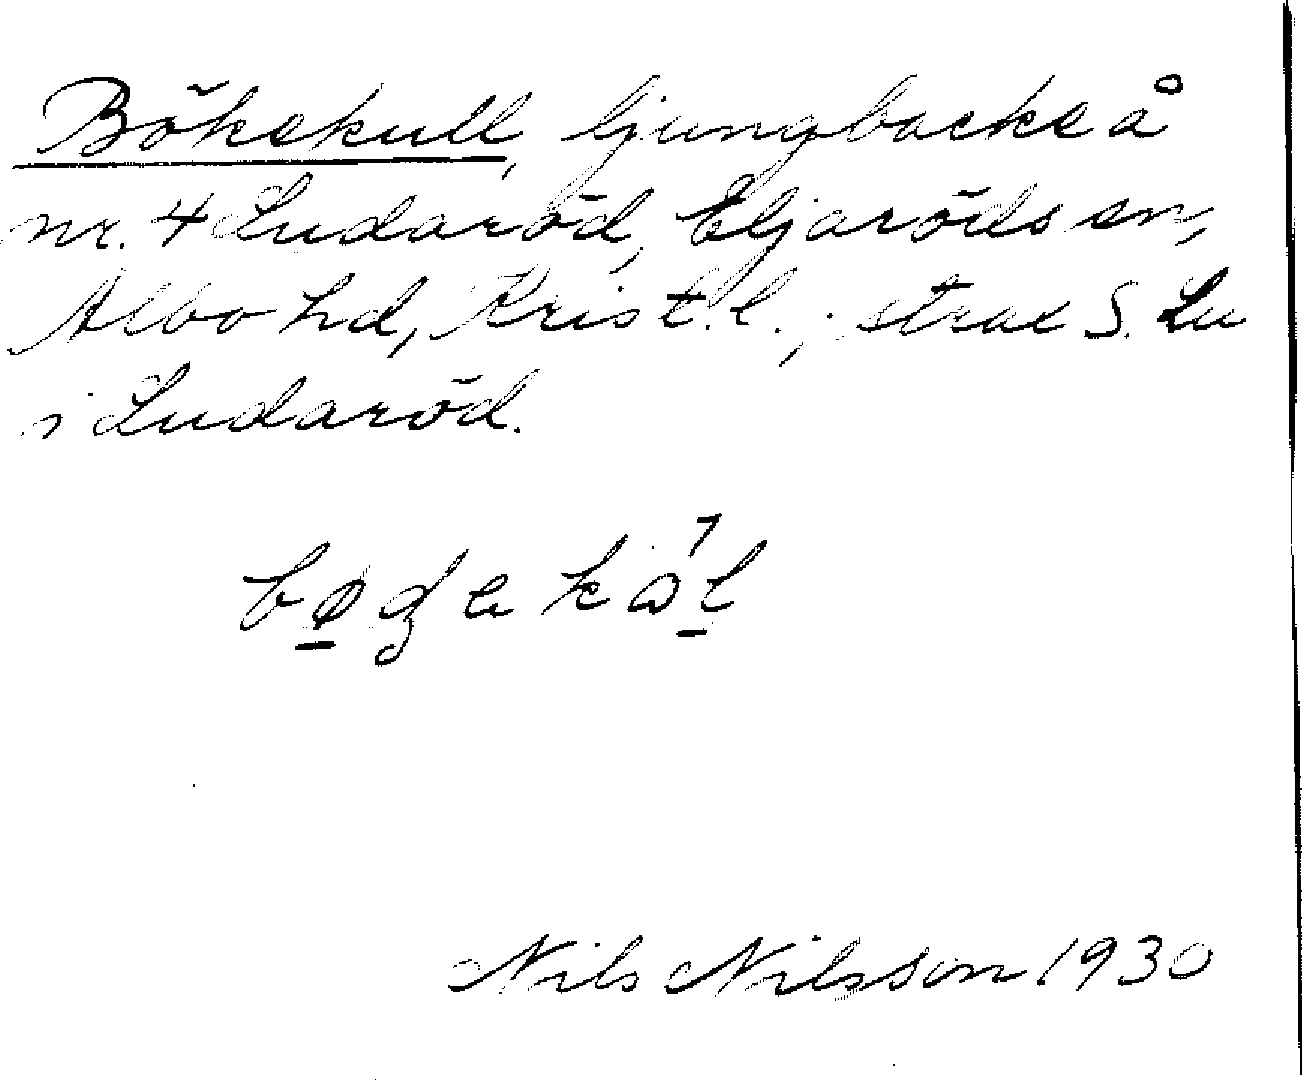 Bökekull, ljungbacke å
nr. 4 Ludaröd, Eljaröds sn,
Albo hd, Krist. l.; strax S. Lu
i Ludaröd.
Nils Nilsson 1930